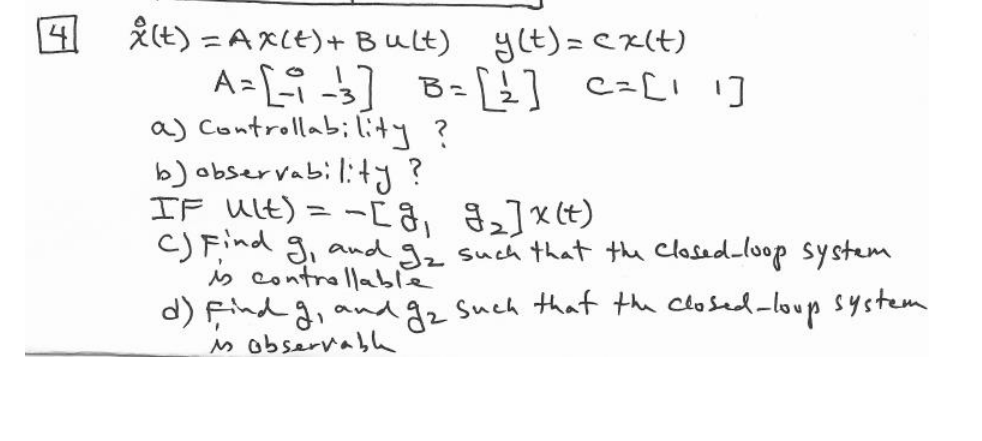 4 ẋ(t) = A x(t) + B u(t) y(t) = c x(t)
A = [0 1 -1 -3] B = [1 2] C = [1 1]
a) Controllability ?
b) observability ?
IF u(t) = -[g₁ g₂] x(t)
c) Find g₁ and g₂ such that the closed-loop system
is controllable
d) Find g₁ and g₂ such that the closed-loop system
is observable